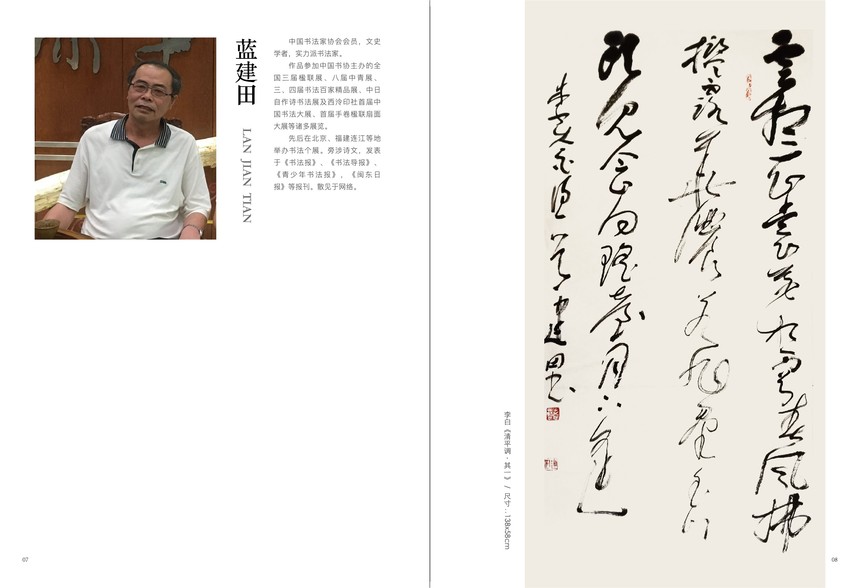 蓝建田
LAN JIAN TIAN
中国书法家协会会员，文史
学者，实力派书法家。
作品参加中国书协主办的全
国三届楹联展、八届中青展、
三、四届书法百家精品展、中日
自作诗书法展及西泠印社首届中
国书法大展、首届手卷楹联扇面
大展等诸多展览。
先后在北京、福建连江等地
举办书法个展。旁涉诗文，发表
于《书法报》、《书法导报》、
《青少年书法报》，《闽东日
报》等报刊。散见于网络。
07
雲想衣裳花想容春風拂
檻露華濃若非群玉山
頭見會向瑶臺月下逢
建田書
李白《清平调·其一》/ 尺寸：138x58cm
08